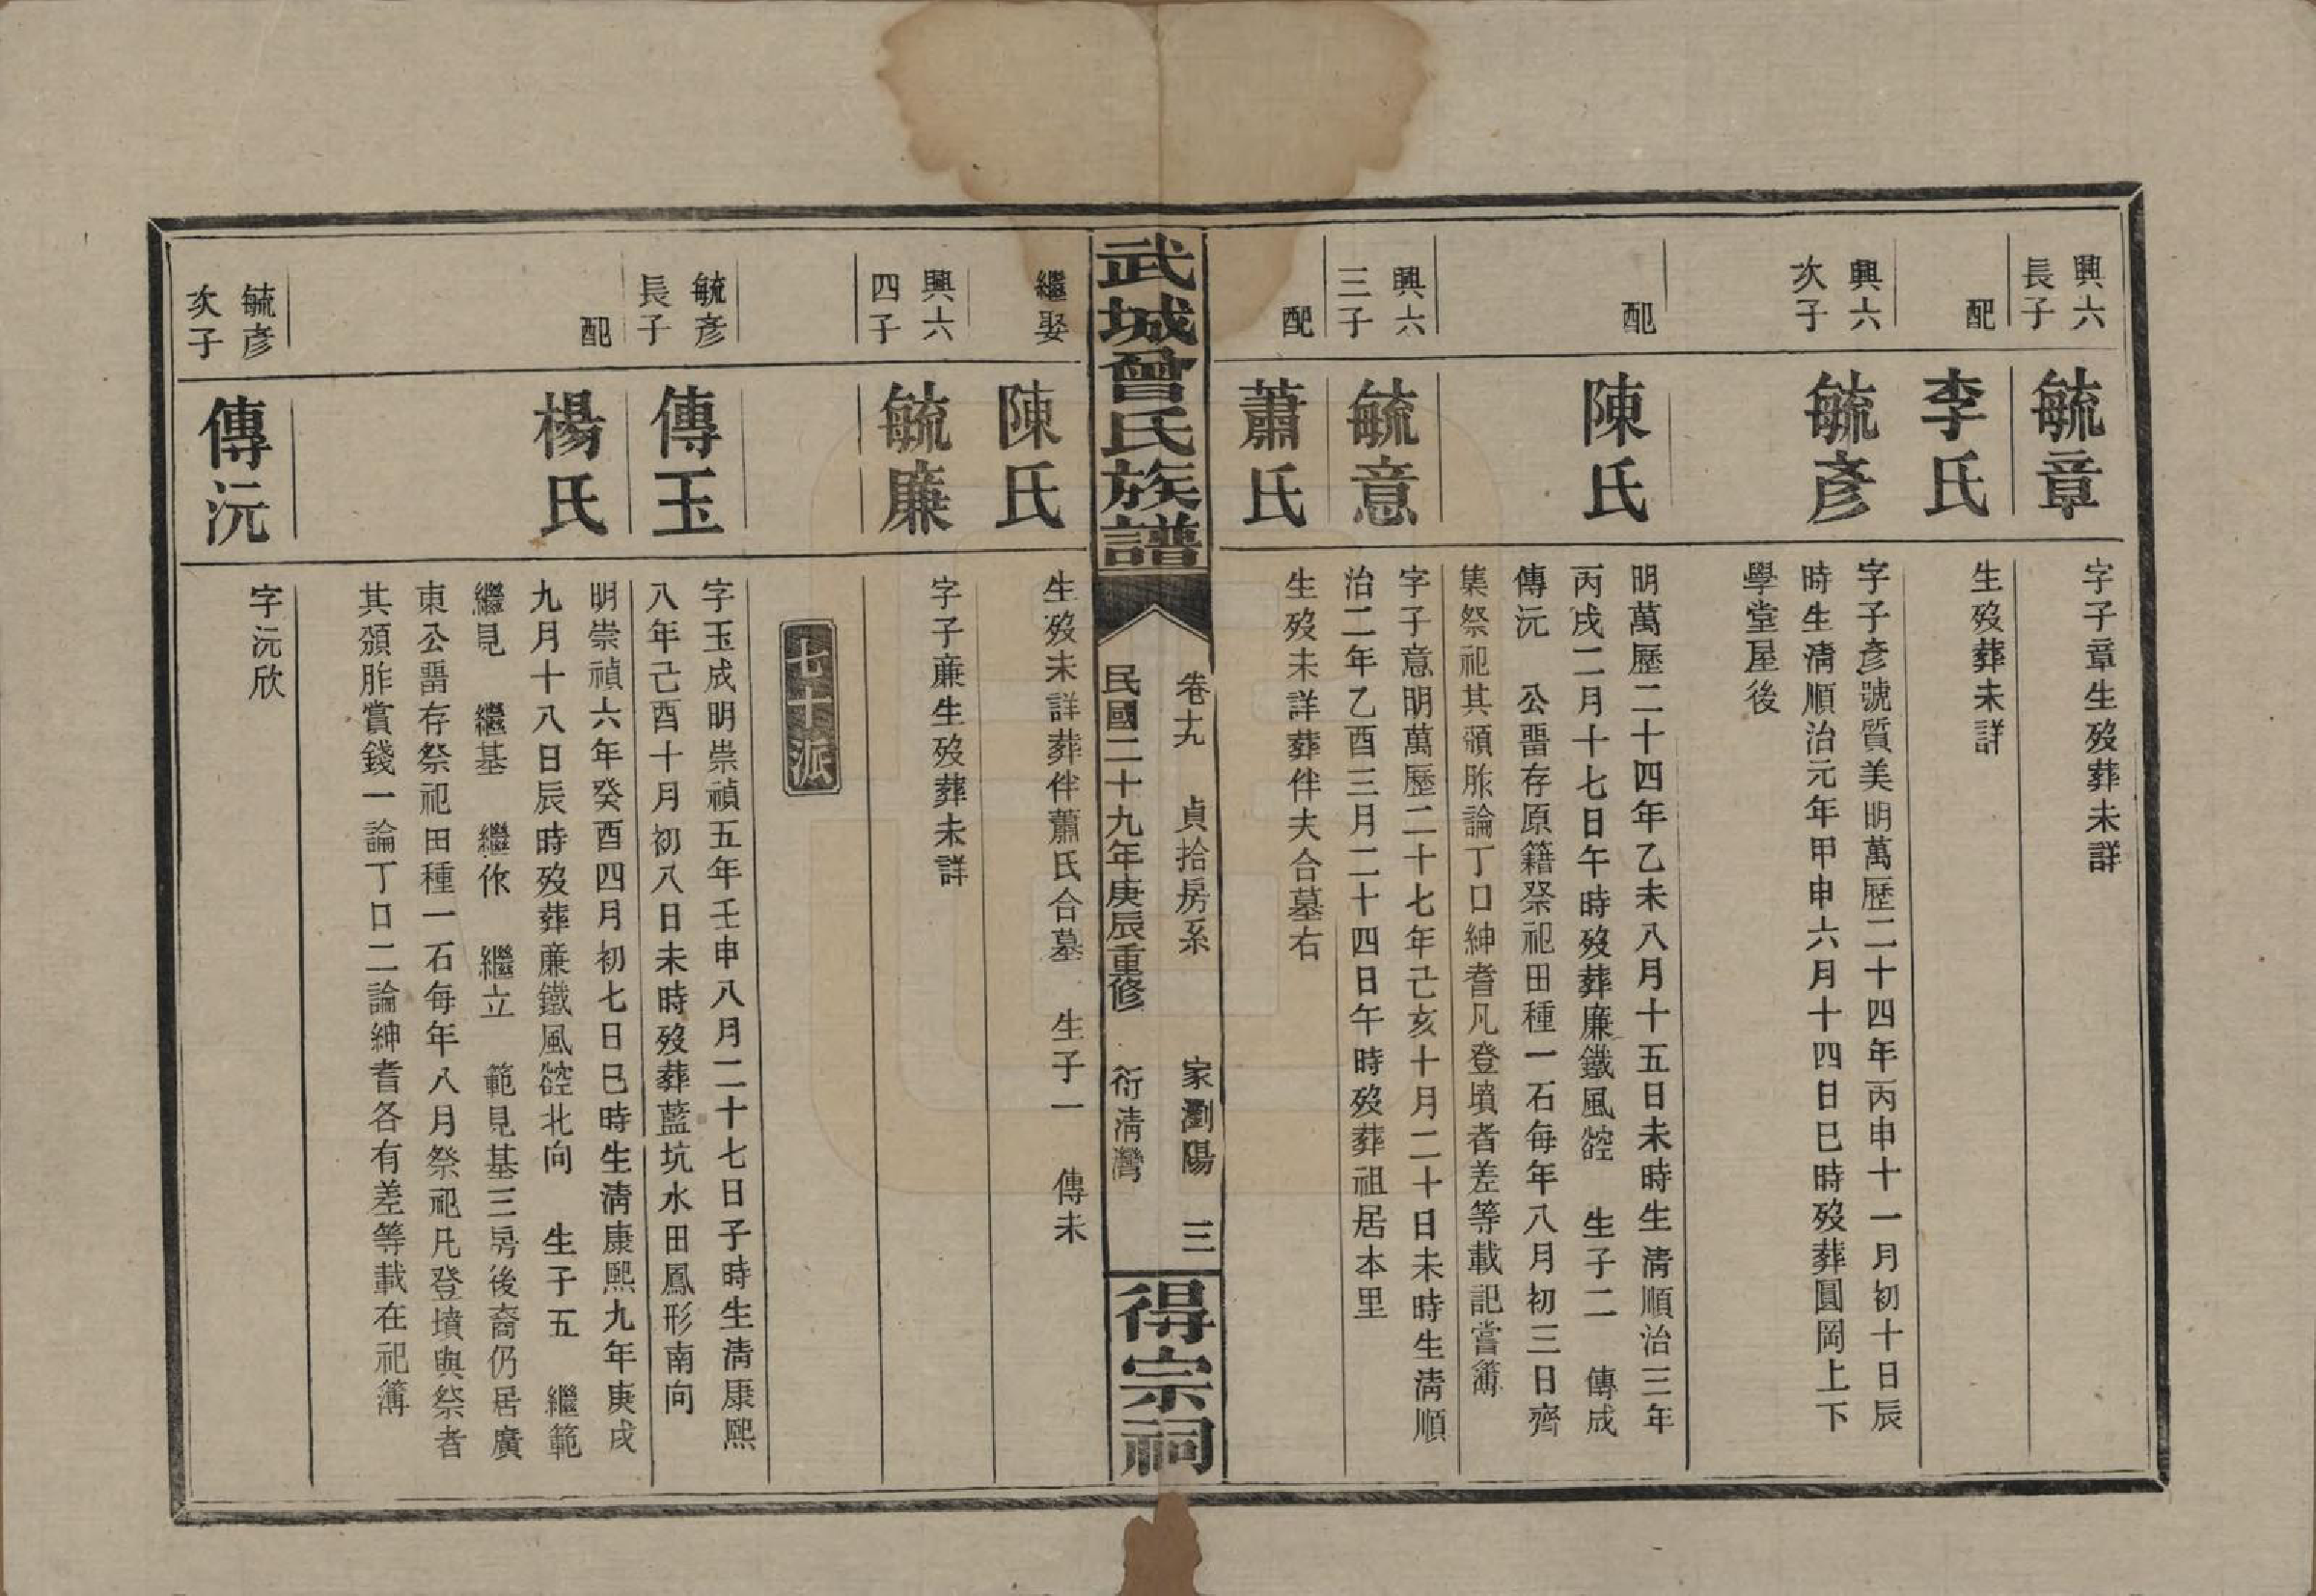 興六
長子
毓章
字子章生歿葬未詳
配
李氏
生歿葬未詳
興六
次子
毓彥
字子彥號質美明萬歷二十四年丙申十一月初十日辰
時生清順治元年甲申六月十四日巳時歿葬圓岡上下
學堂屋後
配
陳氏
明萬歷二十四年乙未八月十五日未時生清順治三年
丙戌二月十七日午時歿葬廉鐵風 生子二 傳成
傳沅 公畱存原籍祭祀田種一石每年八月初三日齊
集祭祀其頒胙論丁口紳耆凡登墳者差等載記嘗簿
興六
三子
毓意
字子意明萬歷二十七年己亥十月二十日未時生清順
治二年乙酉三月二十四日午時歿葬祖居本里
配
蕭氏
生歿未詳葬伴夫合墓右
武城曾氏族譜
卷十九 貞拾房系 家瀏陽 三
民國二十九年庚辰重修 衍清灣
得宗祠
繼娶
陳氏
生歿未詳葬伴蕭氏合墓 生子一 傳未
興六
四子
毓廉
字子廉生歿葬未詳
七十派
毓彥
長子
傳玉
字玉成明崇禎五年壬申八月二十七日子時生清康熙
八年己酉十月初八日未時歿葬藍坑水田鳳形南向
配
楊氏
明崇禎六年癸酉四月初七日巳時生清康熙九年庚戌
九月十八日辰時歿葬廉鐵風 北向 生子五 繼範
繼見 繼基 繼作 繼立 範見基三房後裔仍居廣
東公畱存祭祀田種一石每年八月祭祀凡登墳與祭者
其頒胙賞錢一論丁口二論紳耆各有差等載在祀簿
毓彥
次子
傳沅
字沅欣